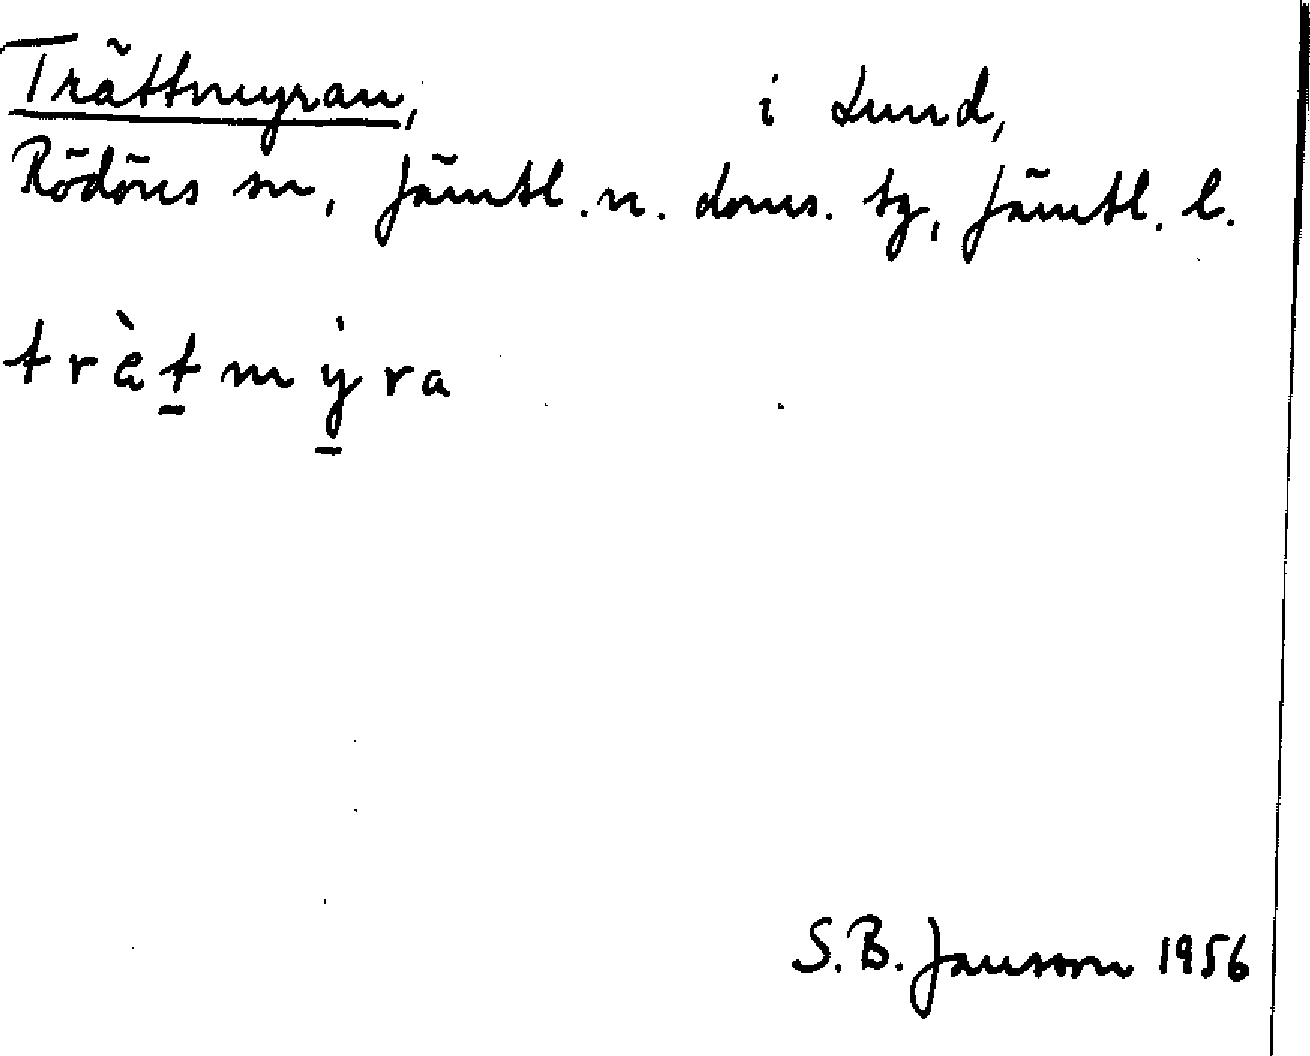 Trättmyran, i Lund,
Rödöns sn, Jämtl. n. doms. tg, Jämtl. l.
trä̀t̠mẏ̠ra
S. B. Jansson 1956